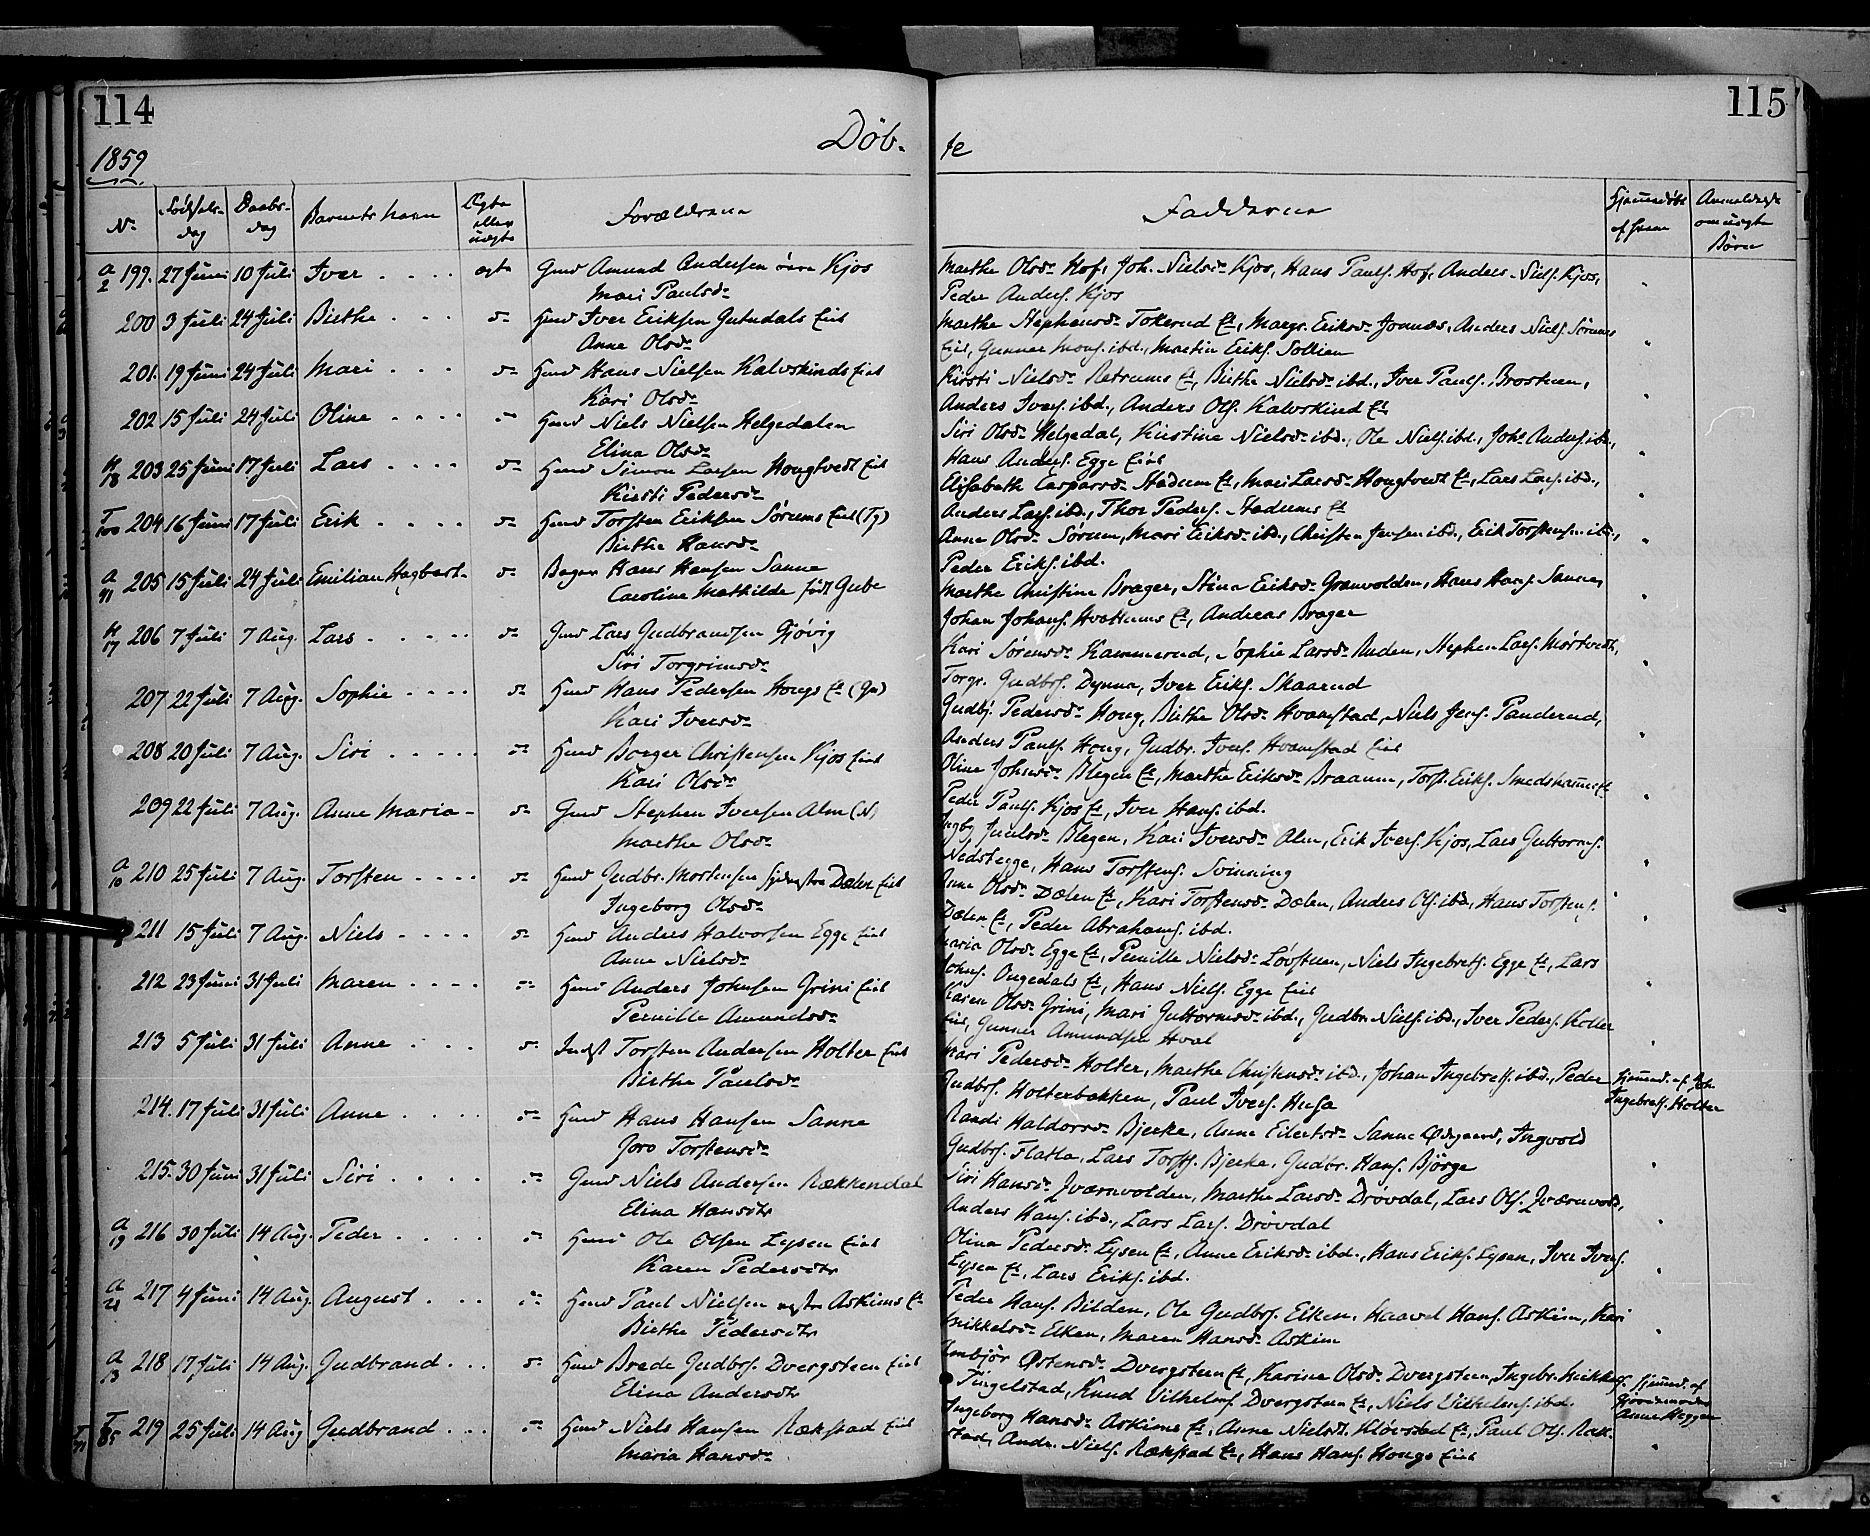 114
115
Døb-
te
1859
No
Fødsels-
dag
Daabs-
dag
Barnets Navn
Ægte
eller
uægte
Forældrene
Fadderne
Hjemmedøbt
af hvem
Anmeldelse
om uægte
Børn
199. 27 Juni 10 Juli Iver . . . . ægte Gmd Amund Andersen øvre Kjos
Mari Paulsdr
Marthe Olsdr Hof, Joh. Nielsdr Kjos, Hans Pauls. Hof, Anders Niels. Kjos,
Peder Anders. Kjos
200 3 Juli 24 Juli Birthe . . . Hmd Iver Eriksen
Anne Olsdr
Marthe Stephensdr Tokerud, Margr. Eriksdr Jonnæs, Anders Niels. Sørums
Gunner Mons. ibd., Martin Eriks. Sollien
201. 19 Juni 24 Juli Mari . . . Hmd Hans Nielsen Kalvskinds Eie
Kari Olsdr
Kirsti Nielsdr, Birthe Nielsdr ibd., Iver Pauls. Brostuen,
Anders Ivers. ibd., Anders Ols. Kalvskind
202 15 Juli 24 Juli Oline . . . . Hmd Niels Nielsen Helgedalen
Elina Olsdr
Siri Olsdr Helgedal, Kirstine Nielsdr ibd., Ole Niels. ibd., Johs Anders. ibd.,
Hans Anders. Egge Eie
203 25 Juni 17 Juli Lars . . . . Hmd Simon Larsen Hougtvedt Eie
Kirsti Pedersdr
Elisabeth Caspersdr Stadum, Mari Larsdr Hougtvedt, Lars Lars. ibd.,
Anders Lars. ibd., Thor Peders. Stadums
204 16 Juni 17 Juli Erik . . . . Hmd Torsten Eriksen Sørums Eie (Tj)
Birthe Hansdr
Anne Olsdr Sørum, Mari Eriksdr ibd., Christen Jensen ibd., Erik Torstens. ibd.,
Peder Eriks. ibd.
205 15 Juli 24 Juli Emilian Hagbart. Bager Hans Hansen Sanne
Caroline Mathilde født Gube
Marthe Christine Brager, Stina Eriksdr Granvolden, Hans Hans. Sanne,
Johan Johans. Hvattums, Andreas Brager
206 7 Juli 7 Aug. Lars . . . . . Gmd Lars Gudbrandsen Gjøvig
Siri Torgrimsdr
Kari Sørensdr Kammerud, Sophie Larsdr Ruden, Stephen Lars. Mørtvedt,
Torgr. Gudbrs. Dynna, Iver Eriks. Skaarud
207 22 Juli 7 Aug. Sophie . . . . Hmd Hans Pedersen Hougs
Kari Iversdr
Gudbj. Pedersdr Houg, Birthe Olsdr Hvamstad, Niels Jens. Panderud,
Anders Pauls. Houg, Gudbr. Ivers. Hvamstad Eie
208 20 Juli 7 Aug. Siri . . . . . Hmd Borger Christensen Kjos Eie
Kari Olsdr
Oline Johnsdr Blegen, Marthe Eriksdr Braanna, Torst. Eriks. Smedshammer
Peder Pauls. Kjos, Iver Hans. ibd.
209 22 Juli 7 Aug. Anne Maria - Gmd Stephen Iversen Alm (N)
Marthe Olsdr
Blegen, Kari Iversdr Alm, Erik Ivers. Kjos, Lars Guttorms.
Nedstegge, Hans Torstens. Svinning
210 25 Juli 7 Aug. Torsten . . . . Hmd Gudbr. Mortensen Dælen Eie
Ingeborg Olsdr
Anne Olsdr Dælen, Kari Torstensdr Dælen, Anders Ols. ibd., Hans Torstens.
Dælen, Peder Abrahams. ibd.
211 15 Juli 7 Aug. Niels . . . . Hmd Anders Halvorsen Egge Eie
Anne Nielsdr
Maria Olsdr Egge, Pernille Nielsdr Løvstuen, Niels Ingebrets. Egge, Lars
Johns. Ongedals, Hans Niels. Egge Eie
212 23 Juni 31 Juli Maren . . . . Hmd Anders Johnsen Grini Eie
Pernille Amundsdr
Karen Olsdr Grini, Mari Guttormsdr ibd., Gudbr. Niels. ibd., Iver Peders. Holter
Eie, Gunner Amundsen Hval
213 5 Juli 31 Juli Anne . . . Indst Torsten Andersen Holter Eie
Birthe Paulsdr
Mari Pedersdr Holter, Marthe Christensdr ibd., Johan Ingebrets. ibd., Peder
Gudbrs. Holterbakken, Paul Ivers. Husa
Hjemmed. af Joh.
Ingebrets. Holter
214. 17 Juli 31 Juli Anne . . . . Hmd Hans Hansen Sanne
Goro Torstensdr
Randi Haldorsdr Bjerke, Anne Eilertsdr Sanne Ødegaard, Ingvold
Gudbrs. Flatla, Lars Torsts. Bjerke, Gudbr. Hans. Bjørge
215. 30 Juni 31 Juli Siri . . . . Gmd Niels Andersen Rækkendal
Elina Hansdtr
Siri Hansdr Qværnvolden, Marthe Larsdr Drøvdal, Lars Ols. Qværnvold,
Anders Hans. ibd., Lars Lars. Drøvdal
216 30 Juli 14 Aug. Peder . . . . Hmd Ole Olsen Lysen Eie
Karen Pedersdtr
Olina Pedersdr Lysen, Anne Eriksdr ibd., Hans Eriks. Lysen, Iver Ivers.
Lysen, Lars Eriks. ibd.
217 4 Juni 14 Aug. August . . . Hmd Paul Nielsen Askims
Birthe Pedersdtr
Peder Hans. Bilden, Ole Gudbrs. Eiken, Haavel Hans. Askim, Kari
Mikkelsdr Eiken, Maren Hansdr Askim
218 17 Juli 14 Aug. Gudbrand . . . Hmd Brede Gudbrs. Dvergsteen Eie
Elina Andersdtr
Østensdr Dvergsteen, Karine Olsdr Dvergsteen, Ingebr. Mikkels.
Tingelstad, Knud Vilhelms. Dvergsteen, Niels Vilhelms. ibd.
Hjemmed. af
Gjordemoder
Anne Heggen
219 25 Juli 14 Aug Gudbrand . . . Hmd Niels Hansen Rækstad Eie
Maria Hansdr
Ingeborg Hansdr Askims, Anne Nielsdr Kløvstad, Paul Ols. Ræk-
stad, Andr. Niels. Rækstad, Hans Hans. Hougs Eie